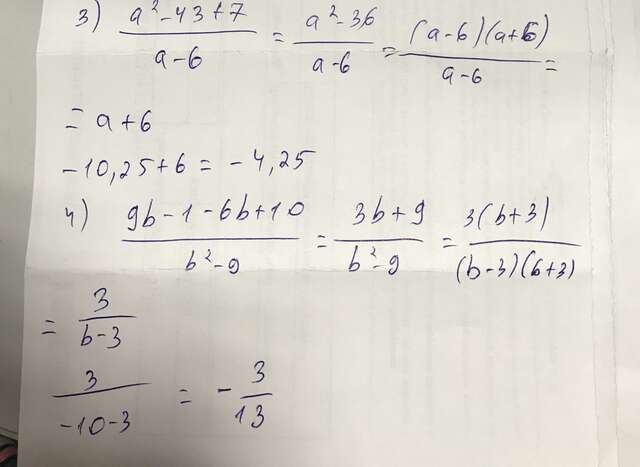 3) (a² - 43 + 7)/(a - 6) = (a² - 36)/(a - 6) = ((a - 6)(a + 6))/(a - 6) =
= a + 6
-10,25 + 6 = -4,25
4) (9b - 1 - 6b + 10)/(b² - 9) = (3b + 9)/(b² - 9) = (3(b + 3))/((b - 3)(b + 3))
= 3/(b - 3)
3/(-10 - 3) = -3/13